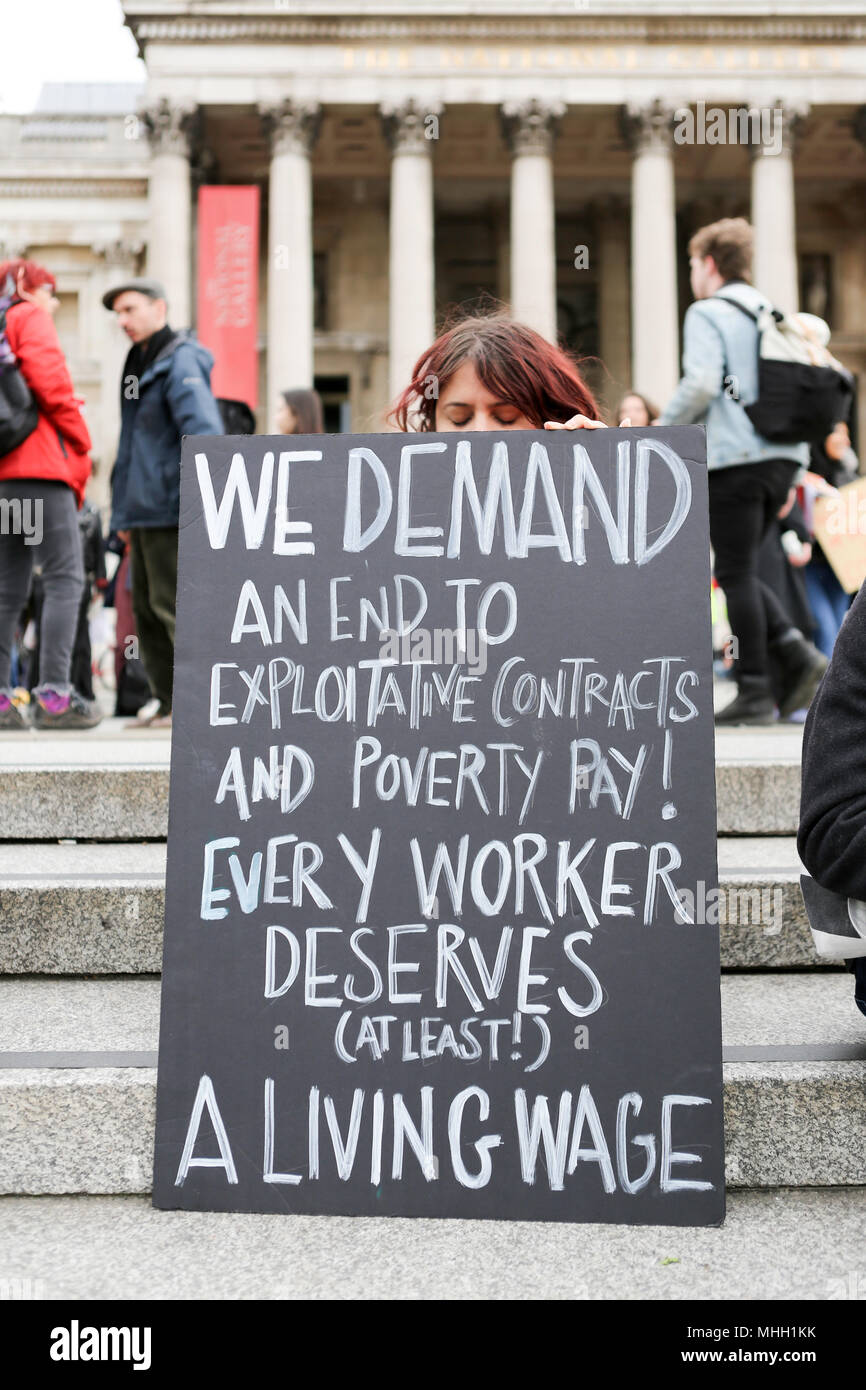 THE NATIONAL GALLERY
NATIONAL
GALLERY
WE DEMAND
AN END TO
EXPLOITATIVE CONTRACTS
AND POVERTY PAY!
EVERY WORKER
DESERVES
(AT LEAST!)
A LIVING WAGE
alamy
Image ID: MHH1KK
www.alamy.com